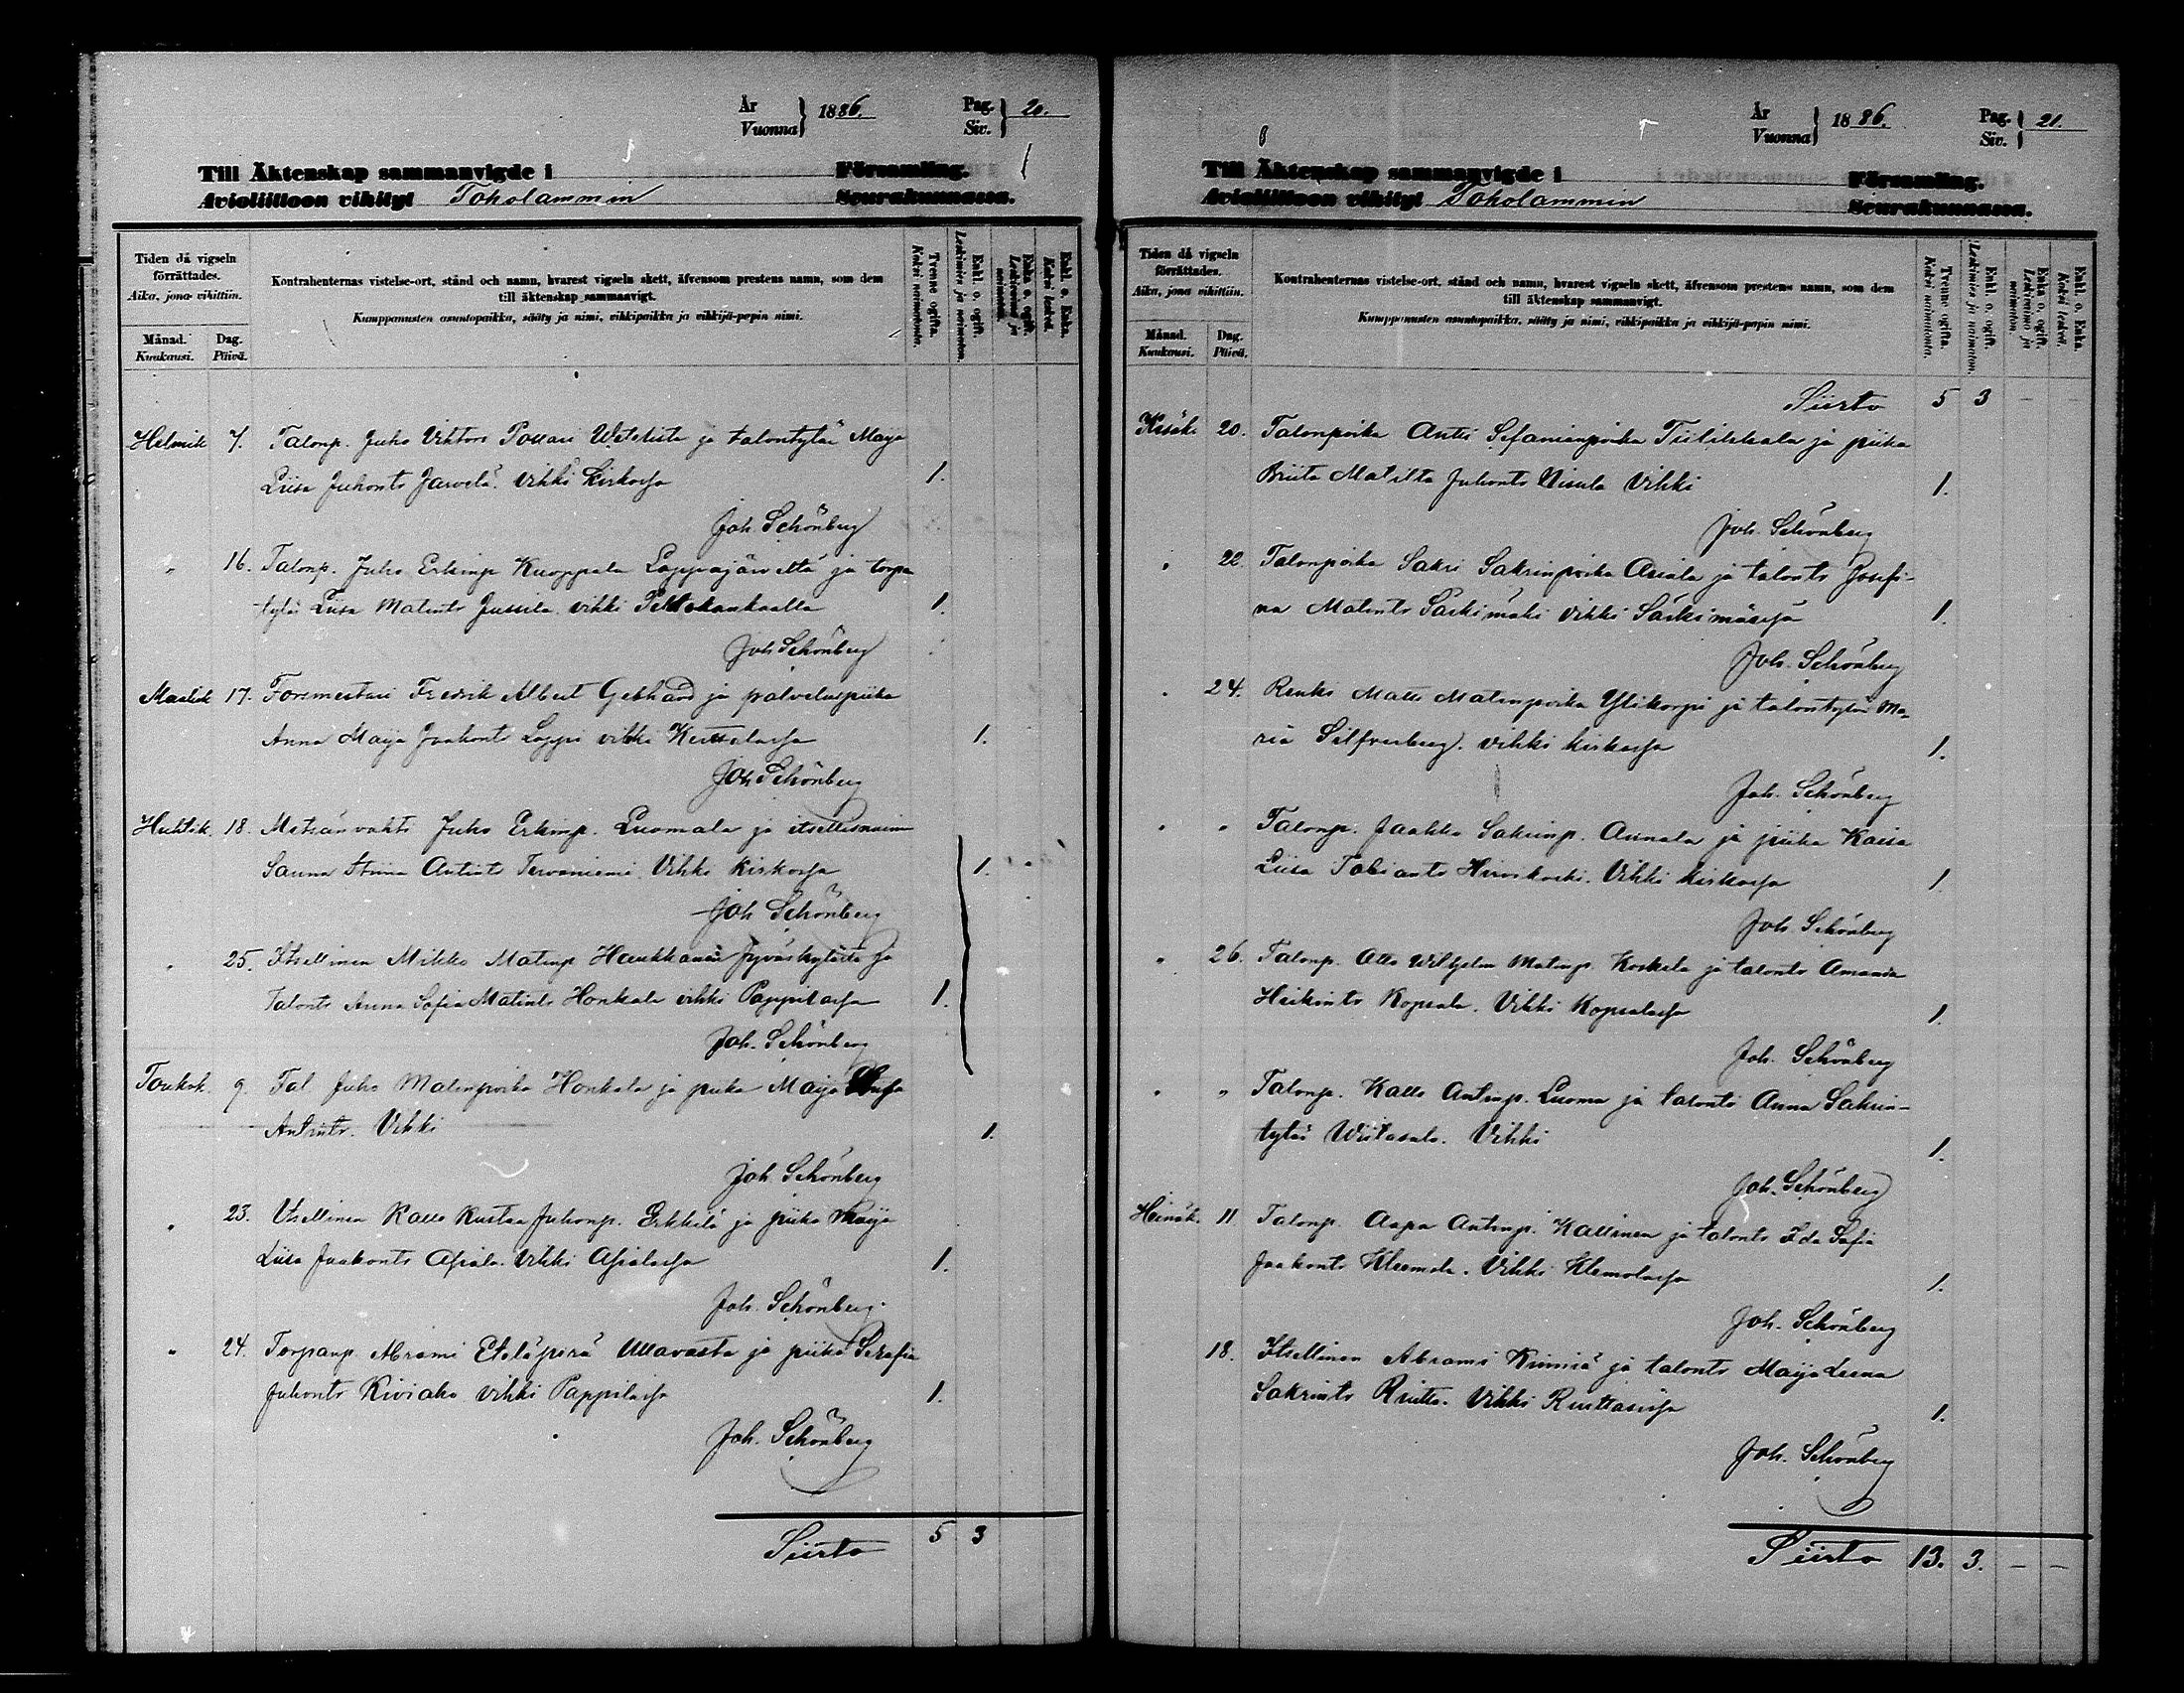 År
Vuonna } 1886.
Pag.
Siv. } 20.
Till Äktenskap sammanvigde i Församling.
Avioliittoon vihityt Toholammin Seurakunnassa.
Tiden då vigseln förrättades.
Aika, jona vihittiin.
Månad.
Kuukausi.
Dag.
Päivä.
Kontrahenternas vistelse-ort, stånd och namn, hvarest vigseln skett, äfvensom prestens namn, som dem
till äktenskap sammanvigt.
Kumppanusten asuntopaikka, sääty ja nimi, vihkipaikka ja vihkijä-papin nimi.
Tvenne ogifta.
Kaksi naimatonta.
Enkl. o. ogift.
Leskimies ja naimaton.
Enka o. ogift.
Leskivaimo ja naimaton.
Enkl. o. Enka.
Kaksi leskeä.
Helmik 7. Talonp. Juho Viktori Possari Wetelistä ja talontytär Maija
Liisa Juhonts Jarvelä. Vihki Kirkossa 1.
Joh Schönberg
" 16. Talonp. Juho Erkinp Kuoppala Lappajärveltä ja torp
tytär Liisa Matints Jussila vihki Peltokankaalla 1.
Joh Schönberg
Maalisk 17. Foremestari Fredrik Albert Gebhard ja palveluspiika
Anna Maija Jaakonts Lappi vihki 1.
Joh Schönberg
Huhtik. 18. Metsänvahti Juho Erkinp. Luomala ja itsellisnainen
Sanna Stiina Antints Tervaniemi. Vihki Kirkossa 1.
Joh Schönberg
" 25. Itsellinen Mikko Matinp Haukkanen Jyväskylästä ja
Talonts Anna Sofia Matints Honkala vihki Pappilassa 1.
Joh. Schönberg
Toukok. 9. Tal Juho Matinpoika Honkala ja piika Maija
Antints. Vihki 1.
Joh Schönberg
" 23. Itsellinen Kalle Kustaa Juhonp. Erkkilä ja piika Maija
Liisa Jaakonts Asiala. Vihki Asialassa 1.
Joh. Schönberg.
" 24. Torpanp. Abrami Eteläperä Ullavasta ja piika Serafia
Juhonts Kiviaho vihki Pappilassa 1.
Joh. Schönberg
Siirto 5 3
År
Vuonna } 1886.
Pag.
Siv. } 21.
Till Äktenskap sammanvigde i Församling.
Avioliittoon vihityt Toholammin Seurakunnassa.
Tiden då vigseln förrättades.
Aika, jona vihittiin.
Månad.
Kuukausi.
Dag.
Päivä.
Kontrahenternas vistelse-ort, stånd och namn, hvarest vigseln skett, äfvensom prestens namn, som dem
till äktenskap sammanvigt.
Kumppanusten asuntopaikka, sääty ja nimi, vihkipaikka ja vihkijä-papin nimi.
Tvenne ogifta.
Kaksi naimatonta.
Enkl. o. ogift.
Leskimies ja naimaton.
Enka o. ogift.
Leskivaimo ja naimaton.
Enkl. o. Enka.
Kaksi leskeä.
Siirto 5 3 - -
Kesäk. 20. Talonpoika Antti Sefanianpoika ja piika
Briita Matilta Juhonts Nisula Vihki 1.
Joh. Schönberg
" 22. Talonpoika Sakri Sakrinpoika Asiala ja talonts Josefi-
na Matints Särkimäki Vihki Särkimäessä 1.
Joh. Schönberg
" 24. Renki Matti Matinpoika Ylikorpi ja talontytär Ma-
ria Silfverberg. Vihki kirkossa 1.
Joh. Schönberg
" " Talonp. Jaakko Sakrinp. Annala ja piika Kaisa
Liisa Tobiants Hirvikoski. Vihki kirkossa 1
Joh Schönberg
" 26. Talonp. Otto Wilhelm Matinp. Koskela ja talonts Amanda
Heikints Kopsala. Vihki Kopsalassa 1.
Joh. Schönberg
" " Talonp. Kalle Antinp. Luoma ja talonts Anna Sakrin-
tytär Wiitasalo. Vihki 1.
Joh. Schönberg
Heinäk. 11 Talonp. Aapa Antinp. Kallinen ja talonts Ida Sofia
Jaakonts Klemola. Vihki Klemolassa 1.
Joh. Schönberg
18. Itsellinen Abrami ja talonts Maija Leena
Sakrints Riutta. Vihki 1.
Joh. Schönberg
Siirto 13. 3. - -